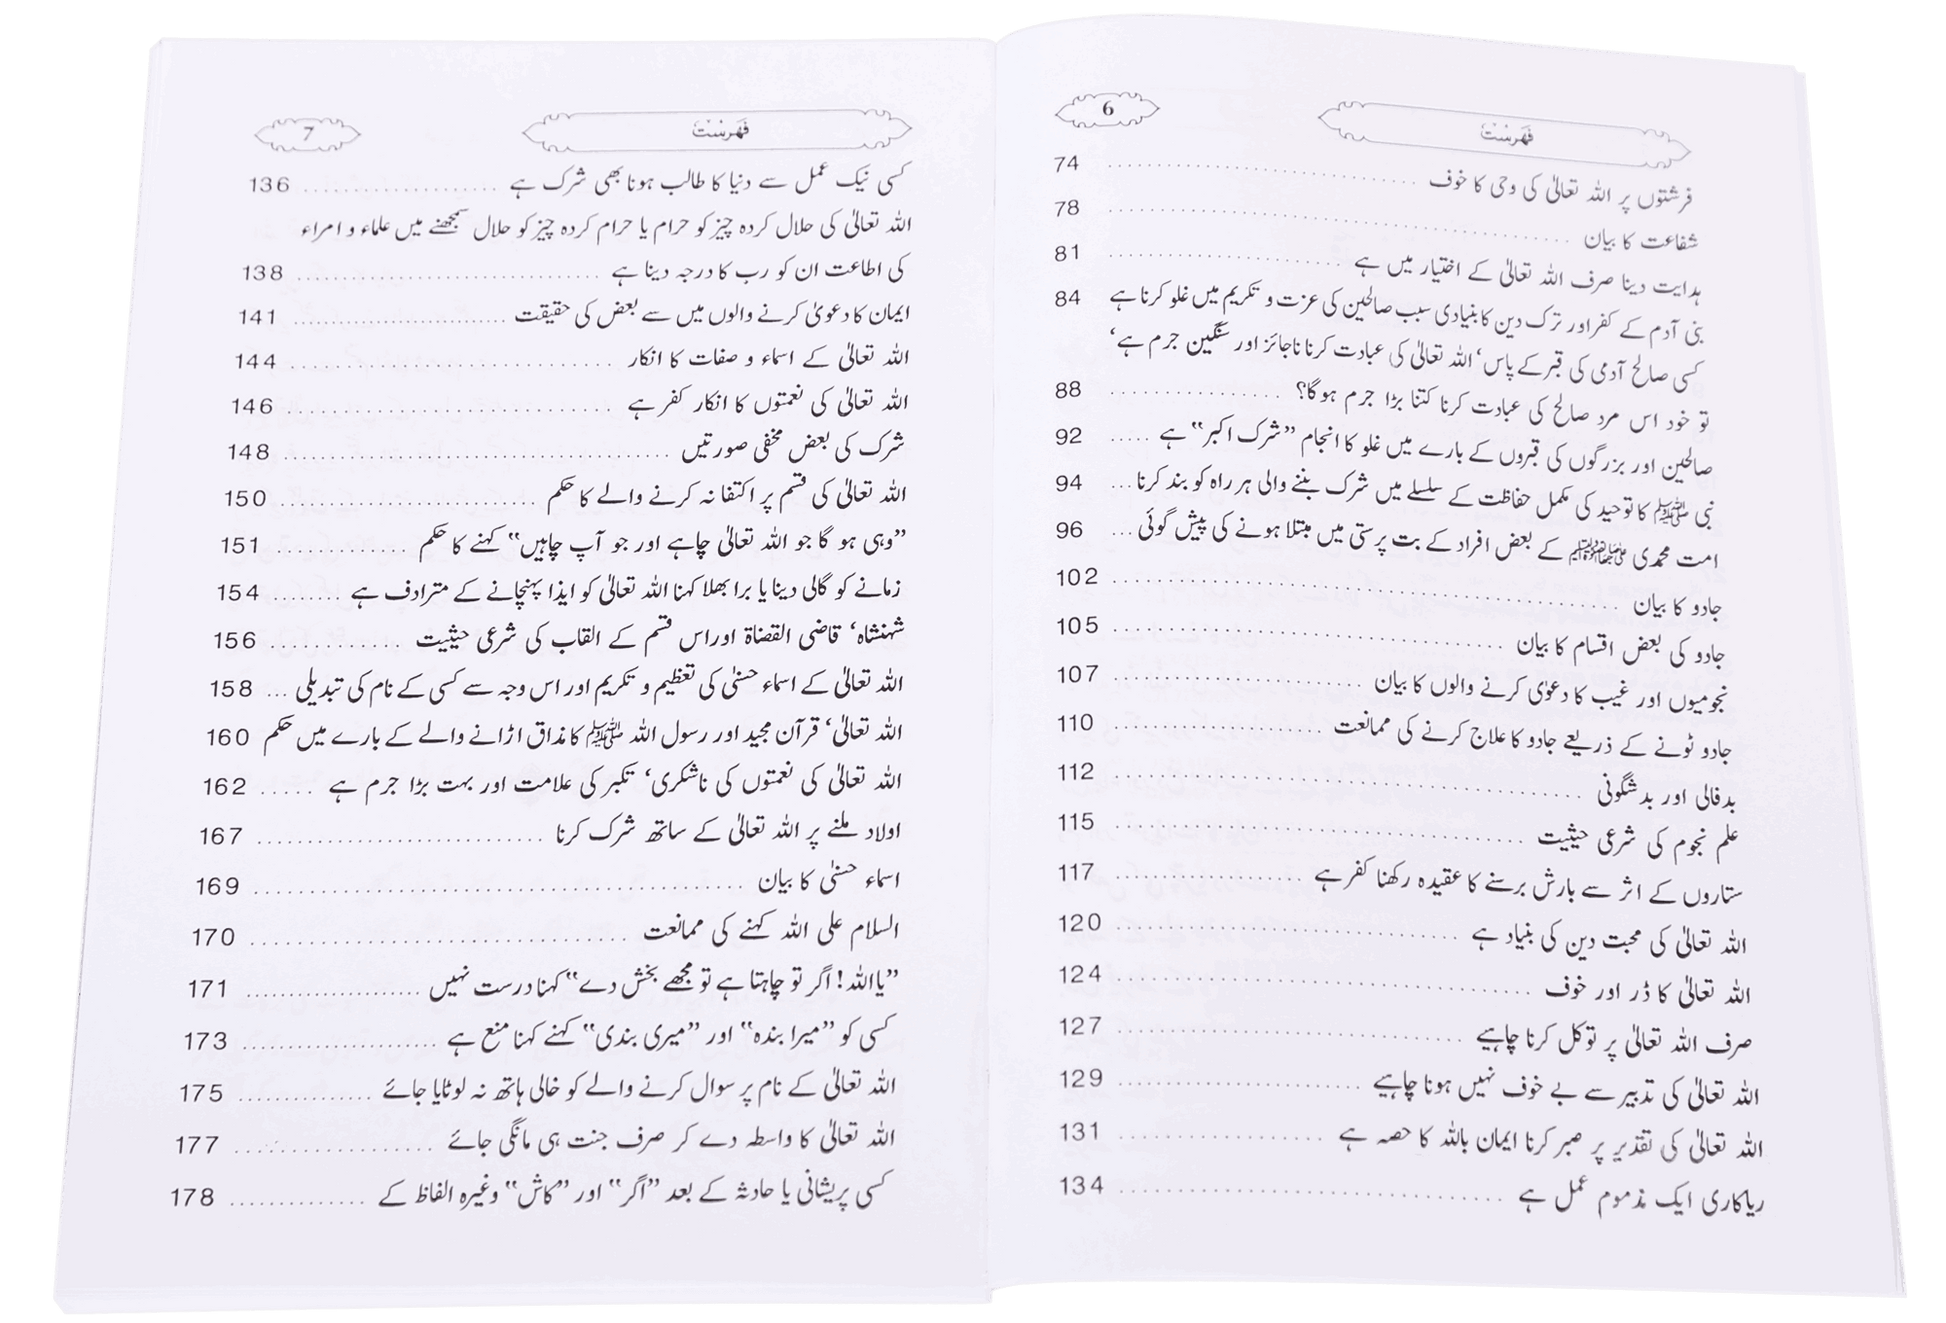 فہرست 6
فرشتوں پر اللہ تعالیٰ کی وحی کا خوف ........ 74
شفاعت کا بیان ........ 78
ہدایت دینا صرف اللہ تعالیٰ کے اختیار میں ہے ........ 81
بنی آدم کے کفر اور ترک دین کا بنیادی سبب صالحین کی عزت و تکریم میں غلو کرنا ہے 84
کسی صالح آدمی کی قبر کے پاس‘ اللہ تعالیٰ کی عبادت کرنا ناجائز اور سنگین جرم ہے‘
تو خود اس مرد صالح کی عبادت کرنا کتنا بڑا جرم ہوگا؟ ........ 88
صالحین اور بزرگوں کی قبروں کے بارے میں غلو کا انجام ”شرک اکبر“ ہے ..... 92
نبی ﷺ کا توحید کی مکمل حفاظت کے سلسلے میں شرک بننے والی ہر راہ کو بند کرنا ... 94
امت محمدی ﷺ کے بعض افراد کے بت پرستی میں مبتلا ہونے کی پیش گوئی ... 96
جادو کا بیان ........ 102
جادو کی بعض اقسام کا بیان ........ 105
نجومیوں اور غیب کا دعوٰی کرنے والوں کا بیان ........ 107
جادو ٹونے کے ذریعے جادو کا علاج کرنے کی ممانعت ........ 110
بدفالی اور بدشگونی ........ 112
علم نجوم کی شرعی حیثیت ........ 115
ستاروں کے اثر سے بارش برسنے کا عقیدہ رکھنا کفر ہے ........ 117
اللہ تعالیٰ کی محبت دین کی بنیاد ہے ........ 120
اللہ تعالیٰ کا ڈر اور خوف ........ 124
صرف اللہ تعالیٰ پر توکل کرنا چاہیے ........ 127
اللہ تعالیٰ کی تدبیر سے بے خوف نہیں ہونا چاہیے ........ 129
اللہ تعالیٰ کی تقدیر پر صبر کرنا ایمان باللہ کا حصہ ہے ........ 131
ریاکاری ایک مذموم عمل ہے ........ 134
فہرست 7
کسی نیک عمل سے دنیا کا طالب ہونا بھی شرک ہے ........ 136
اللہ تعالیٰ کی حلال کردہ چیز کو حرام یا حرام کردہ چیز کو حلال سمجھنے میں علماء و امراء
کی اطاعت ان کو رب کا درجہ دینا ہے ........ 138
ایمان کا دعویٰ کرنے والوں میں سے بعض کی حقیقت ........ 141
اللہ تعالیٰ کے اسماء و صفات کا انکار ........ 144
اللہ تعالیٰ کی نعمتوں کا انکار کفر ہے ........ 146
شرک کی بعض مخفی صورتیں ........ 148
اللہ تعالیٰ کی قسم پر اکتفا نہ کرنے والے کا حکم ........ 150
”وہی ہو گا جو اللہ تعالیٰ چاہے اور جو آپ چاہیں“ کہنے کا حکم ........ 151
زمانے کو گالی دینا یا برا بھلا کہنا اللہ تعالیٰ کو ایذا پہنچانے کے مترادف ہے ........ 154
شہنشاہ‘ قاضی القضاة اوراس قسم کے القاب کی شرعی حیثیت ........ 156
اللہ تعالیٰ کے اسماء حسنیٰ کی تعظیم و تکریم اور اس وجہ سے کسی کے نام کی تبدیلی ... 158
اللہ تعالیٰ‘ قرآن مجید اور رسول اللہ ﷺ کا مذاق اڑانے والے کے بارے میں حکم 160
اللہ تعالیٰ کی نعمتوں کی ناشکری‘ تکبر کی علامت اور بہت بڑا جرم ہے ..... 162
اولاد ملنے پر اللہ تعالیٰ کے ساتھ شرک کرنا ........ 167
اسماء حسنیٰ کا بیان ........ 169
السلام علی اللہ کہنے کی ممانعت ........ 170
”یااللہ! اگر تو چاہتا ہے تو مجھے بخش دے“ کہنا درست نہیں ........ 171
کسی کو ”میرا بندہ“ اور ”میری بندی“ کہنے کہنا منع ہے ........ 173
اللہ تعالیٰ کے نام پر سوال کرنے والے کو خالی ہاتھ نہ لوٹایا جائے ........ 175
اللہ تعالیٰ کا واسطہ دے کر صرف جنت ہی مانگی جائے ........ 177
کسی پریشانی یا حادثہ کے بعد ”اگر“ اور ”کاش“ وغیرہ الفاظ کے ........ 178